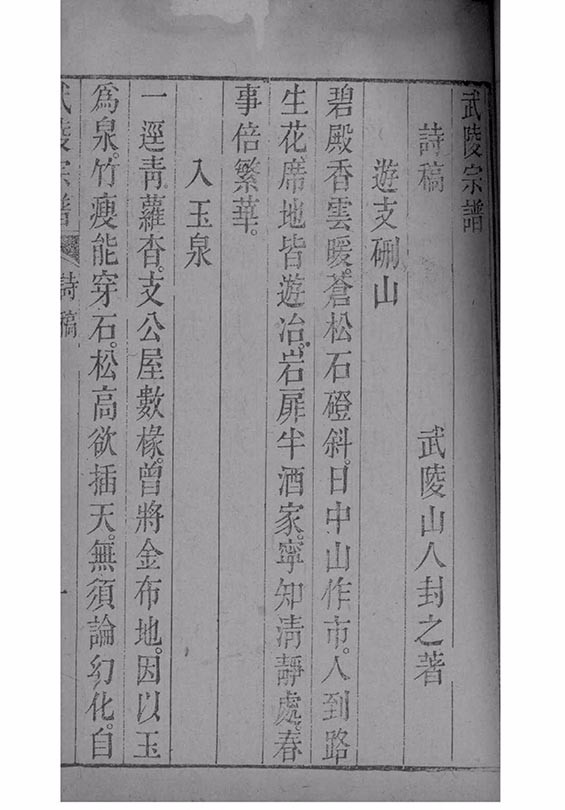 武陵宗譜
詩稿　武陵山人封之著
遊支硎山
碧殿香雲暖。蒼松石磴斜。日中山作市。人到路
生花。席地皆遊冶。岩扉半酒家。寧知清靜處。春
事倍繁華。
入玉泉
一逕靑蘿杳。支公屋數椽。曾將金布地。因以玉
爲泉。竹瘦能穿石。松高欲插天。無須論幻化。自
武陵宗譜　詩稿　一